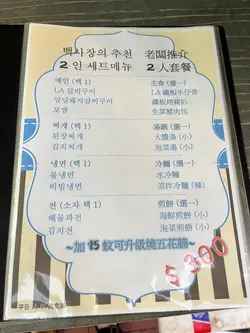 백사장의 추천 老闆推介
2인 세트메뉴 2人套餐
메인 (택 1) 主食 (選一)
LA 갈비구이 LA 鐵板牛仔骨
양념돼지갈비구이 鐵板烤豬扒
보쌈 生菜豬肉包
찌개 (택 1) 湯鍋 (選一)
된장찌개 大醬湯 (小)
김치찌개 泡菜湯 (小)
냉면 (택 1) 冷麵 (選一)
물냉면 水冷麵
비빔냉면 涼拌冷麵 (辣)
전 (소자 택 1) 煎餅 (選一)
해물파전 海鮮煎餅 (小)
김치전 泡菜煎餅 (小)
~加 15 蚊可升級燒五花腩~
$ 300